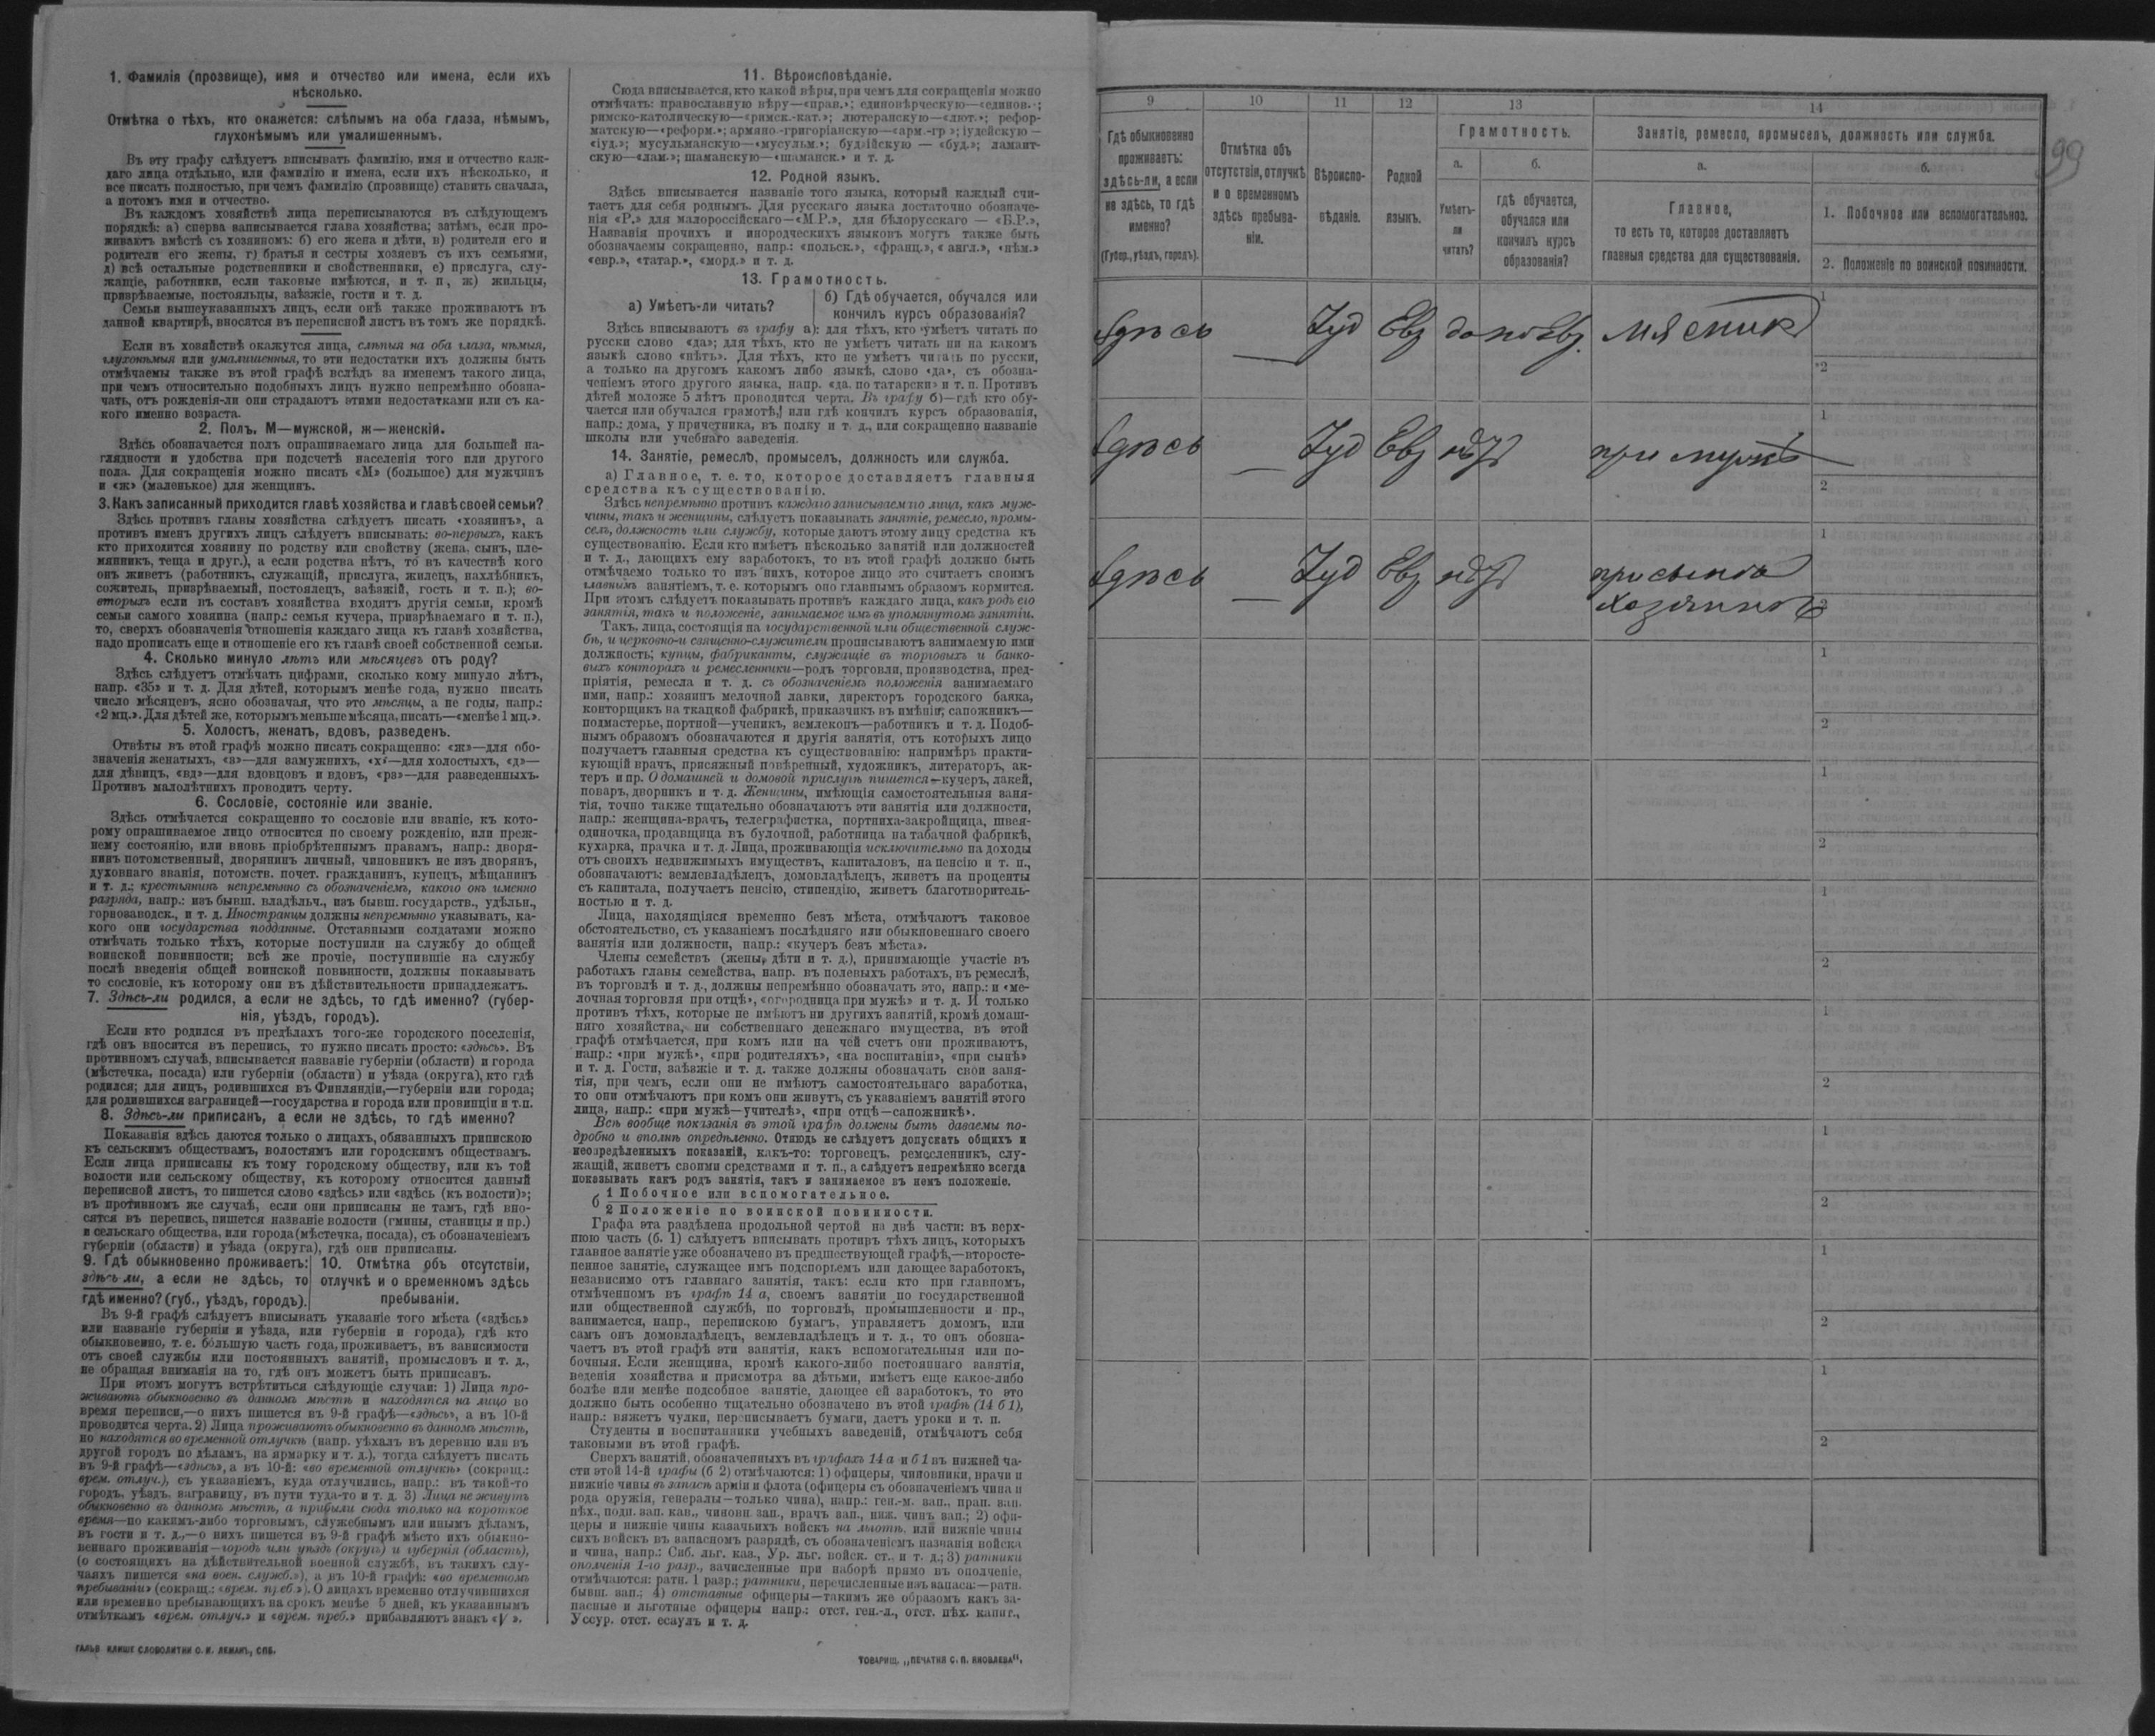 1. Фамилія (прозвище), имя и отчество или имена, если ихъ
нѣсколько.
Отмѣтка о тѣхъ, кто окажется: слѣпымъ на оба глаза, нѣмымъ,
глухонѣмымъ или умалишеннымъ.
Въ эту графу слѣдуетъ вписывать фамилію, имя и отчество каж-
даго лица отдѣльно, или фамилію и имена, если ихъ нѣсколько, и
все писать полностью, при чемъ фамилію (прозвище) ставить сначала,
а потомъ имя и отчество.
Въ каждомъ хозяйствѣ лица переписываются въ слѣдующемъ
порядкѣ: а) сперва записывается глава хозяйства; затѣмъ, если про-
живаютъ вмѣстѣ съ хозяиномъ: б) его жена и дѣти, в) родители его и
родители его жены, г) братья и сестры хозяевъ съ ихъ семьями,
д) всѣ остальные родственники и свойственники, е) прислуга, слу-
жащіе, работники, если таковые имѣются, и т. п., ж) жильцы,
призрѣваемые, постояльцы, заѣзжіе, гости и т. д.
Семьи вышеуказанныхъ лицъ, если онѣ также проживаютъ въ
данной квартирѣ, вносятся въ переписной листъ въ томъ же порядкѣ.
Если въ хозяйствѣ окажутся лица, слѣпыя на оба глаза, нѣмыя,
глухонѣмыя или умалишенныя, то эти недостатки ихъ должны быть
отмѣчаемы также въ этой графѣ вслѣдъ за именемъ такого лица,
при чемъ относительно подобныхъ лицъ нужно непремѣнно обозна-
чать, отъ рожденія-ли они страдаютъ этими недостатками или съ ка-
кого именно возраста.
2. Полъ. М—мужской, ж—женскій.
Здѣсь обозначается полъ опрашиваемаго лица для большей на-
глядности и удобства при подсчетѣ населенія того или другого
пола. Для сокращенія можно писать «М» (большое) для мужчинъ
и «ж» (маленькое) для женщинъ.
3. Какъ записанный приходится главѣ хозяйства и главѣ своей семьи?
Здѣсь противъ главы хозяйства слѣдуетъ писать «хозяинъ», а
противъ именъ другихъ лицъ слѣдуетъ вписывать: во-первыхъ, какъ
кто приходится хозяину по родству или свойству (жена, сынъ, пле-
мянникъ, теща и друг.), а если родства нѣтъ, то въ качествѣ кого
онъ живетъ (работникъ, служащій, прислуга, жилецъ, нахлѣбникъ,
сожитель, призрѣваемый, постоялецъ, заѣзжій, гость и т. п.); во-
вторыхъ если въ составъ хозяйства входятъ другія семьи, кромѣ
семьи самого хозяина (напр.: семья кучера, призрѣваемаго и т. п.),
то, сверхъ обозначенія отношенія каждаго лица къ главѣ хозяйства,
надо прописать еще и отношеніе его къ главѣ своей собственной семьи.
4. Сколько минуло лѣтъ или мѣсяцевъ отъ роду?
Здѣсь слѣдуетъ отмѣчать цифрами, сколько кому минуло лѣтъ,
напр. «35» и т. д. Для дѣтей, которымъ менѣе года, нужно писать
число мѣсяцевъ, ясно обозначая, что это мѣсяцы, а не годы, напр.:
«2 мц.». Для дѣтей же, которымъ меньше мѣсяца, писать—«менѣе 1 мц.».
5. Холостъ, женатъ, вдовъ, разведенъ.
Отвѣты въ этой графѣ можно писать сокращенно: «ж»—для обо-
значенія женатыхъ, «з»—для замужнихъ, «х»—для холостыхъ, «д»—
для дѣвицъ, «вд»—для вдовцовъ и вдовъ, «рз»—для разведенныхъ.
Противъ малолѣтнихъ проводить черту.
6. Сословіе, состояніе или званіе.
Здѣсь отмѣчается сокращенно то сословіе или званіе, къ кото-
рому опрашиваемое лицо относится по своему рожденію, или преж-
нему состоянію, или вновь пріобрѣтеннымъ правамъ, напр.: дворя-
нинъ потомственный, дворянинъ личный, чиновникъ не изъ дворянъ,
духовнаго званія, потомств. почет. гражданинъ, купецъ, мѣщанинъ
и т. д.; крестьянинъ непремѣнно съ обозначеніемъ, какого онъ именно
разряда, напр.: изъ бывш. владѣльч., изъ бывш. государств., удѣльн.,
горнозаводск., и т. д. Иностранцы должны непремѣнно указывать, ка-
кого они государства подданные. Отставными солдатами можно
отмѣчать только тѣхъ, которые поступили на службу до общей
воинской повинности; всѣ же прочіе, поступившіе на службу
послѣ введенія общей воинской повинности, должны показывать
то сословіе, къ которому они въ дѣйствительности принадлежатъ.
7. Здѣсь-ли родился, а если не здѣсь, то гдѣ именно? (губер-
нія, уѣздъ, городъ).
Если кто родился въ предѣлахъ того-же городского поселенія,
гдѣ онъ вносится въ перепись, то нужно писать просто: «здѣсь». Въ
противномъ случаѣ, вписывается названіе губерніи (области) и города
(мѣстечка, посада) или губерніи (области) и уѣзда (округа), кто гдѣ
родился; для лицъ, родившихся въ Финляндіи,—губерніи или города;
для родившихся заграницей—государства и города или провинціи и т.п.
8. Здѣсь-ли приписанъ, а если не здѣсь, то гдѣ именно?
Показанія здѣсь даются только о лицахъ, обязанныхъ припискою
къ сельскимъ обществамъ, волостямъ или городскимъ обществамъ.
Если лица приписаны къ тому городскому обществу, или къ той
волости или сельскому обществу, къ которому относится данный
переписной листъ, то пишется слово «здѣсь» или «здѣсь (къ волости)»;
въ противномъ же случаѣ, если они приписаны не тамъ, гдѣ вно-
сятся въ перепись, пишется названіе волости (гмины, станицы и пр.)
и сельскаго общества, или города (мѣстечка, посада), съ обозначеніемъ
губерніи (области) и уѣзда (округа), гдѣ они приписаны.
9. Гдѣ обыкновенно проживаетъ: здѣсь-ли, а если не здѣсь, то гдѣ именно? (губ., уѣздъ, городъ).
10. Отмѣтка объ отсутствіи, отлучкѣ и о временномъ здѣсь пребываніи.
Въ 9-й графѣ слѣдуетъ вписывать указаніе того мѣста («здѣсь»
или названіе губерніи и уѣзда, или губерніи и города), гдѣ кто
обыкновенно, т. е. бо́льшую часть года, проживаетъ, въ зависимости
отъ своей службы или постоянныхъ занятій, промысловъ и т. д.,
не обращая вниманія на то, гдѣ онъ можетъ быть приписанъ.
При этомъ могутъ встрѣтиться слѣдующіе случаи: 1) Лица про-
живаютъ обыкновенно въ данномъ мѣстѣ и находятся на лицо во
время переписи,—о нихъ пишется въ 9-й графѣ—«здѣсь», а въ 10-й
проводится черта. 2) Лица проживаютъ обыкновенно въ данномъ мѣстѣ,
но находятся во временной отлучкѣ (напр. уѣхалъ въ деревню или въ
другой городъ по дѣламъ, на ярмарку и т. д.), тогда слѣдуетъ писать
въ 9-й графѣ—«здѣсь», а въ 10-й: «во временной отлучкѣ» (сокращ.:
врем. отлуч.), съ указаніемъ, куда отлучились, напр.: въ такой-то
городъ, уѣздъ, заграницу, въ пути туда-то и т. д. 3) Лица не живутъ
обыкновенно въ данномъ мѣстѣ, а прибыли сюда только на короткое
время—по какимъ-либо торговымъ, служебнымъ или инымъ дѣламъ,
въ гости и т. д.,—о нихъ пишется въ 9-й графѣ мѣсто ихъ обыкно-
веннаго проживанія—городъ или уѣздъ (округъ) и губернія (область),
(о состоящихъ на дѣйствительной военной службѣ, въ такихъ слу-
чаяхъ пишется «на воен. служб.»), а въ 10-й графѣ: «во временномъ
пребываніи» (сокращ.: «врем. преб.»). О лицахъ временно отлучившихся
или временно пребывающихъ на срокъ менѣе 5 дней, къ указаннымъ
отмѣткамъ «врем. отлуч.» и «врем. преб.» прибавляютъ знакъ «V».
ГАЛЬВ. КЛИШЕ СЛОВОЛИТНИ О. И. ЛЕМАНЪ, СПБ.
11. Вѣроисповѣданіе.
Сюда вписывается, кто какой вѣры, при чемъ для сокращенія можно
отмѣчать: православную вѣру—«прав.»; единовѣрческую—«единов.»;
римско-католическую—«римск.-кат.»; лютеранскую—«лют.»; рефор-
матскую—«реформ.»; армяно-григоріанскую—«арм.-гр»; іудейскую—
«іуд.»; мусульманскую—«мусульм.»; буддійскую — «буд.»; ламаит-
скую—«лам.»; шаманскую—«шаманск.» и т. д.
12. Родной языкъ.
Здѣсь вписывается названіе того языка, который каждый счи-
таетъ для себя роднымъ. Для русскаго языка достаточно обозначе-
нія «Р.» для малороссійскаго—«М.Р.», для бѣлорусскаго — «Б.Р.»,
Названія прочихъ и инородческихъ языковъ могутъ также быть
обозначаемы сокращенно, напр.: «польск.», «франц.», «англ.», «нѣм.»
«евр.», «татар.», «морд.» и т. д.
13. Грамотность.
а) Умѣетъ-ли читать?
б) Гдѣ обучается, обучался или кончилъ курсъ образованія?
Здѣсь вписываютъ въ графу а): для тѣхъ, кто умѣетъ читать по
русски слово «да»; для тѣхъ, кто не умѣетъ читать ни на какомъ
языкѣ слово «нѣтъ». Для тѣхъ, кто не умѣетъ читать по русски,
а только на другомъ какомъ либо языкѣ, слово «да», съ обозна-
ченіемъ этого другого языка, напр. «да. по татарски» и т. п. Противъ
дѣтей моложе 5 лѣтъ проводится черта. Въ графу б)—гдѣ кто обу-
чается или обучался грамотѣ, или гдѣ кончилъ курсъ образованія,
напр.: дома, у причетника, въ полку и т. д., или сокращенно названіе
школы или учебнаго заведенія.
14. Занятіе, ремесло, промыселъ, должность или служба.
а) Главное, т. е. то, которое доставляетъ главныя
средства къ существованію.
Здѣсь непремѣнно противъ каждаго записываемаго лица, какъ муж-
чины, такъ и женщины, слѣдуетъ показывать занятіе, ремесло, промы-
селъ, должность или службу, которые даютъ этому лицу средства къ
существованію. Если кто имѣетъ нѣсколько занятій или должностей
и т. д., дающихъ ему заработокъ, то въ этой графѣ должно быть
отмѣчаемо только то изъ нихъ, которое лицо это считаетъ своимъ
главнымъ занятіемъ, т. е. которымъ оно главнымъ образомъ кормится.
При этомъ слѣдуетъ показывать противъ каждаго лица, какъ родъ его
занятія, такъ и положеніе, занимаемое имъ въ упомянутомъ занятіи.
Такъ, лица, состоящія на государственной или общественной служ-
бѣ, и церковно-и священно-служители прописываютъ занимаемую ими
должность; купцы, фабриканты, служащіе въ торговыхъ и банко-
выхъ конторахъ и ремесленники—родъ торговли, производства, пред-
пріятія, ремесла и т. д. съ обозначеніемъ положенія занимаемаго
ими, напр.: хозяинъ мелочной лавки, директоръ городского банка,
конторщикъ на ткацкой фабрикѣ, приказчикъ въ имѣніи, сапожникъ—
подмастерье, портной—ученикъ, землекопъ—работникъ и т. д. Подоб-
нымъ образомъ обозначаются и другія занятія, отъ которыхъ лицо
получаетъ главныя средства къ существованію: напримѣръ практи-
кующій врачъ, присяжный повѣренный, художникъ, литераторъ, ак-
теръ и пр. О домашней и домовой прислугѣ пишется—кучеръ, лакей,
поваръ, дворникъ и т. д. Женщины, имѣющія самостоятельныя заня-
тія, точно также тщательно обозначаютъ эти занятія или должности,
напр.: женщина-врачъ, телеграфистка, портниха-закройщица, швея-
одиночка, продавщица въ булочной, работница на табачной фабрикѣ,
кухарка, прачка и т. д. Лица, проживающія исключительно на доходы
отъ своихъ недвижимыхъ имуществъ, капиталовъ, на пенсію и т. п.,
обозначаютъ: землевладѣлецъ, домовладѣлецъ, живетъ на проценты
съ капитала, получаетъ пенсію, стипендію, живетъ благотворитель-
ностью и т. д.
Лица, находящіяся временно безъ мѣста, отмѣчаютъ таковое
обстоятельство, съ указаніемъ послѣдняго или обыкновеннаго своего
занятія или должности, напр.: «кучеръ безъ мѣста».
Члены семействъ (жены, дѣти и т. д.), принимающіе участіе въ
работахъ главы семейства, напр. въ полевыхъ работахъ, въ ремеслѣ,
въ торговлѣ и т. д., должны непремѣнно обозначать это, напр.: и «ме-
лочная торговля при отцѣ», «огородница при мужѣ» и т. д. И только
противъ тѣхъ, которые не имѣютъ ни другихъ занятій, кромѣ домаш-
няго хозяйства, ни собственнаго денежнаго имущества, въ этой
графѣ отмѣчается, при комъ или на чей счетъ они проживаютъ,
напр.: «при мужѣ», «при родителяхъ», «на воспитаніи», «при сынѣ»
и т. д. Гости, заѣзжіе и т. д. также должны обозначать свои заня-
тія, при чемъ, если они не имѣютъ самостоятельнаго заработка,
то они отмѣчаютъ при комъ они живутъ, съ указаніемъ занятій этого
лица, напр.: «при мужѣ—учителѣ», «при отцѣ—сапожникѣ».
Всѣ вообще показанія въ этой графѣ должны быть даваемы по-
дробно и вполнѣ опредѣленно. Отнюдь не слѣдуетъ допускать общихъ и
неопредѣленныхъ показаній, какъ-то: торговецъ, ремесленникъ, слу-
жащій, живетъ своими средствами и т. п., а слѣдуетъ непремѣнно всегда
показывать какъ родъ занятія, такъ и занимаемое въ немъ положеніе.
б 1 Побочное или вспомогательное.
2 Положеніе по воинской повинности.
Графа эта раздѣлена продольной чертой на двѣ части: въ верх-
нюю часть (б. 1) слѣдуетъ вписывать противъ тѣхъ лицъ, которыхъ
главное занятіе уже обозначено въ предшествующей графѣ,—второсте-
пенное занятіе, служащее имъ подспорьемъ или дающее заработокъ,
независимо отъ главнаго занятія, такъ: если кто при главномъ,
отмѣченномъ въ графѣ 14 а, своемъ занятіи по государственной
или общественной службѣ, по торговлѣ, промышленности и пр.,
занимается, напр., перепискою бумагъ, управляетъ домомъ, или
самъ онъ домовладѣлецъ, землевладѣлецъ и т. д., то онъ обозна-
чаетъ въ этой графѣ эти занятія, какъ вспомогательныя или по-
бочныя. Если женщина, кромѣ какого-либо постояннаго занятія,
веденія хозяйства и присмотра за дѣтьми, имѣетъ еще какое-либо
болѣе или менѣе подсобное занятіе, дающее ей заработокъ, то это
должно быть особенно тщательно обозначено въ этой графѣ (14 б 1),
напр.: вяжетъ чулки, переписываетъ бумаги, даетъ уроки и т. п.
Студенты и воспитанники учебныхъ заведеній, отмѣчаютъ себя
таковыми въ этой графѣ.
Сверхъ занятій, обозначенныхъ въ графахъ 14 а и б 1 въ нижней ча-
сти этой 14-й графы (б 2) отмѣчаются: 1) офицеры, чиновники, врачи и
нижніе чины въ запасѣ арміи и флота (офицеры съ обозначеніемъ чина и
рода оружія, генералы—только чина), напр.: ген.-м. зап., прап. зап.
пѣх., подп. зап. кав., чиновн. зап., врачъ зап., ниж. чинъ зап.; 2) офи-
церы и нижніе чины казачьихъ войскъ на льготѣ, или нижніе чины
сихъ войскъ въ запасномъ разрядѣ, съ обозначеніемъ названія войска
и чина, напр.: Сиб. льг. каз., Ур. льг. войск. ст., и т. д.; 3) ратники
ополченія 1-го разр., зачисленные при наборѣ прямо въ ополченіе,
отмѣчаются: ратн. 1 разр.; ратники, перечисленные изъ запаса:—ратн.
бывш. зап.; 4) отставные офицеры—такимъ же образомъ какъ за-
пасные и льготные офицеры напр.: отст. ген.-л., отст. пѣх. капит.,
Уссур. отст. есаулъ и т. д.
ТОВАРИЩ. „ПЕЧАТНЯ С. П. ЯКОВЛЕВА“,
99
9 10 11 12 13 14
Гдѣ обыкновенно
проживаетъ:
здѣсь-ли, а если
не здѣсь, то гдѣ
именно?
(Губер., уѣздъ, городъ).
Отмѣтка объ
отсутствіи, отлучкѣ
и о временномъ
здѣсь пребыва-
ніи.
Вѣроиспо-
вѣданіе.
Родной
языкъ.
Грамотность.
а.
Умѣетъ-
ли
читать?
б.
гдѣ обучается,
обучался или
кончилъ курсъ
образованія?
Занятіе, ремесло, промыселъ, должность или служба.
а.
Главное,
то есть то, которое доставляетъ
главныя средства для существованія.
б.
1. Побочное или вспомогательное.
2. Положеніе по воинской повинности.
здѣсь — Іуд Евр да по Евр. мясникъ 1
2
здѣсь — Іуд Евр нѣтъ при мужѣ 1
2
здѣсь — Іуд Евр нѣтъ при сынѣ 1
хозяинѣ 2
1
2
1
2
1
2
1
2
1
2
1
2
1
2